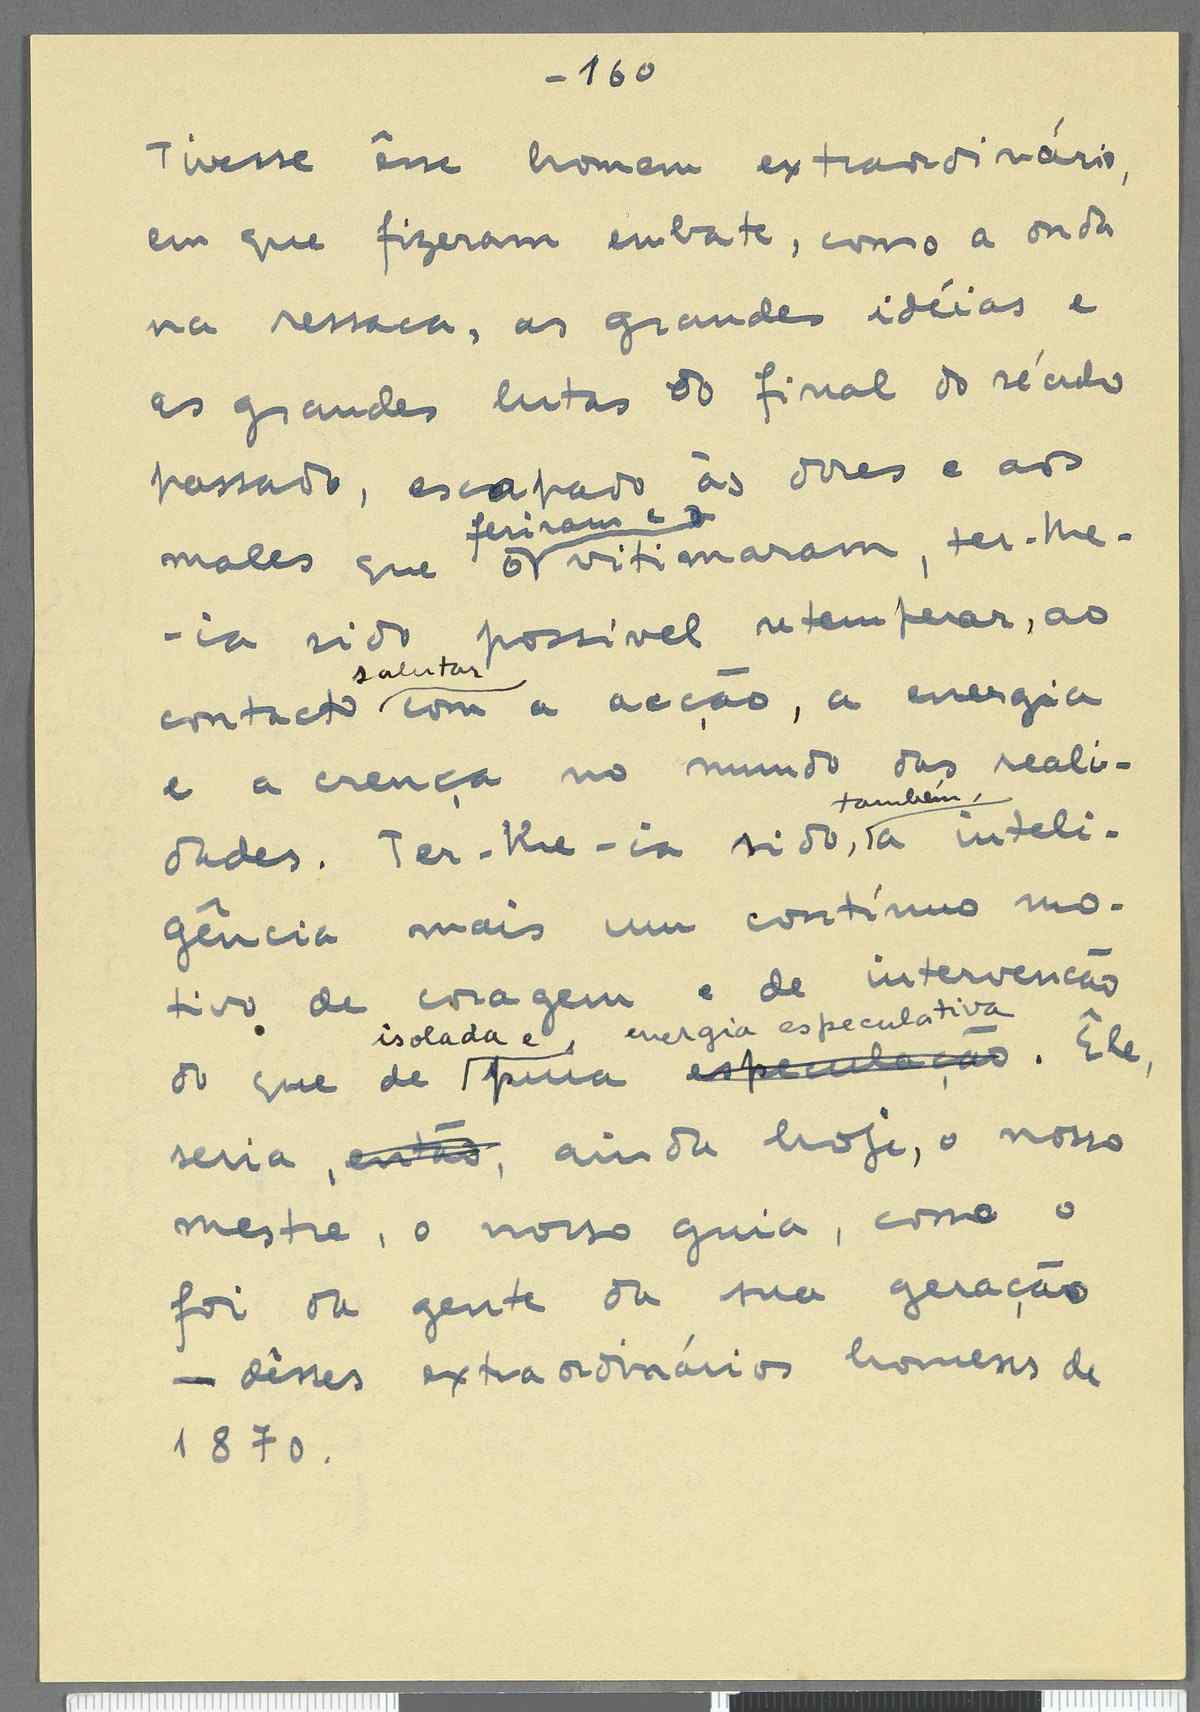 - 160
Tivesse êsse homem extraordinário,
em que fizeram embate, como a onda
na ressaca, as grandes idéias e
as grandes lutas do final do século
passado, escapado às dores e aos
feriram e o
males que o vitimaram, ter-lhe-
-ia sido possível retemperar, ao
salutar
contacto com a acção, a energia
e a crença no mundo das reali-
também,
dades. Ter-lhe-ia sido, a inteli-
gência mais um contínuo mo-
tivo de coragem e de intervenção
isolada e, energia especulativa
do que de pura especulação. Êle,
seria, então, ainda hoje, o nosso
mestre, o nosso guia, como o
foi da gente da sua geração
— dêsses extraordinários homens de
1870.